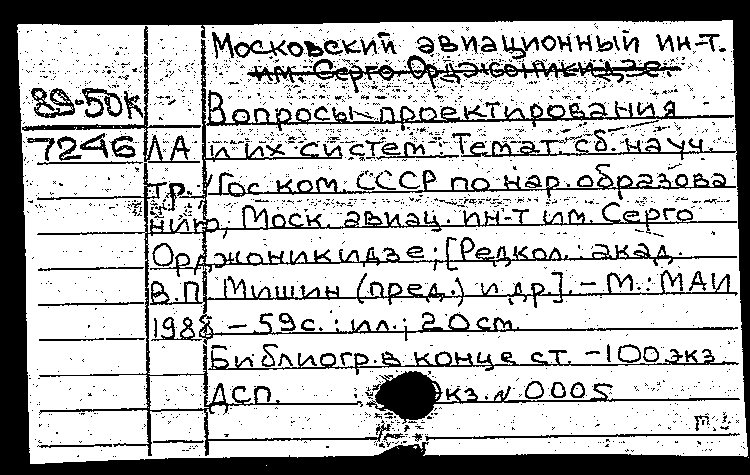 Московский авиационный ин-т.
им. Серго Орджоникидзе.
89-50к Вопросы проектирования
7246 ЛА и их систем: Темат. сб. науч.
тр. / Гос. ком. СССР по нар. образова
нию, Моск. авиац. ин-т им. Серго
Орджоникидзе; [Редкол.: акад.
В.П. Мишин (пред.) и др]. - М.: МАИ
1988 - 59с.: ил.; 20см.
Библиогр. в конце ст. - 100 экз
ДСП. Экз. № 0005